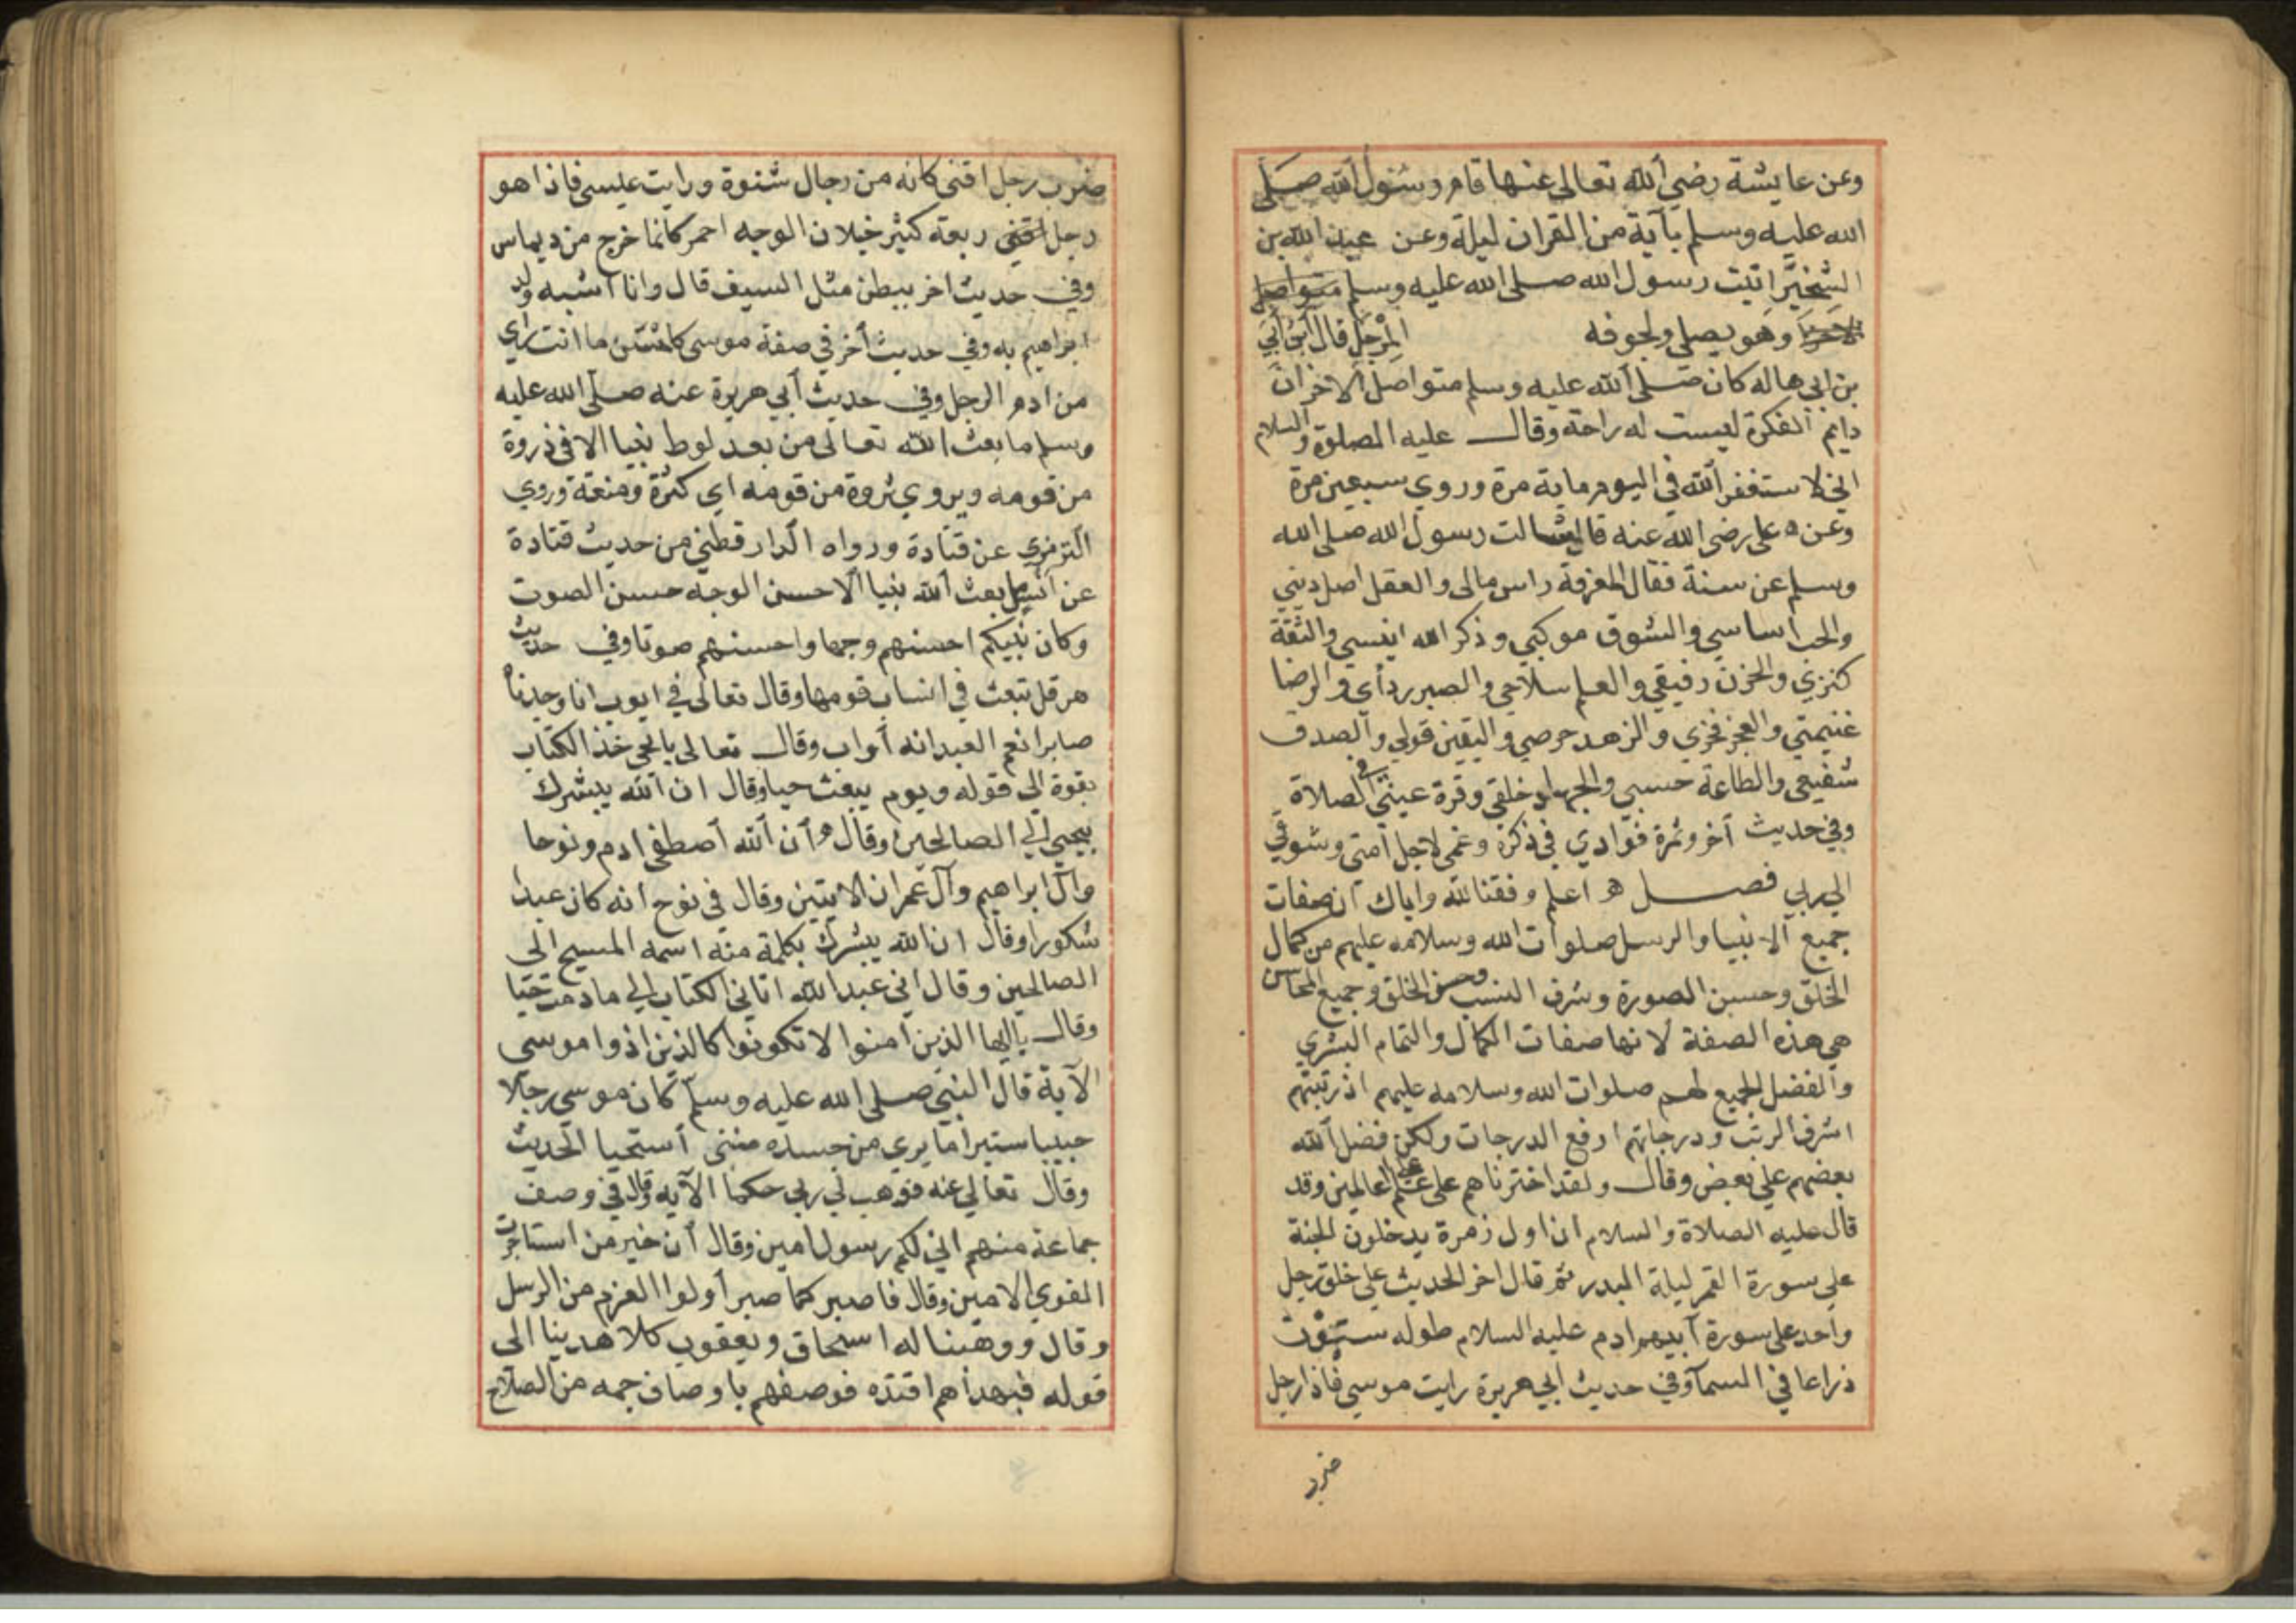 وعن عايشة رضي الله تعالى عنها قام رسول الله صلى
الله عليه وسلم بآية من القران ليلة وعن عبد الله بن
الشخير اتيت رسول الله صلى الله عليه وسلم متواصل
وهو يصلي ولجوفه المرجل قال ابن ابي
بن ابي هاله كان صلى الله عليه وسلم متواصل الاخزان
دايم الفكرة ليست له راحة وقال عليه الصلوة والسلام
اني لاستغفر الله في اليوم ماية مرة وروي سبعين مرة
وعن علي رضي الله عنه قال سالت رسول الله صلى الله
وسلم عن سنة فقال المعرفة راس مالي والعقل اصل ديني
والحب اساسي والشوق موكبي وذكر الله انيسي والثقة
كنزي والحزن رفيقي والعلم سلاحي والصبر ردأي والرضا
غنيمتي والعجز فخري والزهد حرصي واليقين قولي والصدق
شفيعي والطاعة حسبي والجهاد خلقي وقرة عيني في الصلاة
وفي حديث أخر وثمرة فوادي في ذكره وغمي لاجل امتي وشوقي
الي ربي فصل اعلم وفقنا الله واياك ان صفات
جميع الانبيا والرسل صلوات الله وسلامه عليهم من كمال
الخلق وحسن الصورة وشرف النسب وحسن الخلق وجميع المحاسن
هي هذه الصفة لانها صفات الكمال والتمام البشري
والفضل الجميع لهم صلوات الله وسلامه عليهم اذ رتبتهم
اشرف الرتب ودرجاتهم ارفع الدرجات ولكن فضل الله
بعضهم علي بعض وقال ولقد اخترناهم على علم على العالمين وقد
قال عليه الصلاة والسلام ان اول زمرة يدخلون الجنة
علي سورة القمر ليلة البدر ثم قال اخر الحديث علي خلق رجل
واحد على سورة آبيهم ادم عليه السلام طوله ستون
ذراعا في السمآ وفي حديث ابي هريرة رايت موسي فاذا رجل
ضرب
ضرب رجل اقنى كانه من رجال شنوة ورايت عيسى فاذا هو
رجل ربعة كثير خيلان الوجه احمر كانما خرج من ديماس
وفي حديث اخر ببطن مثل السيف قال وانا اشبه ولد
ابراهيم به وفي حديث أخر في صفة موسى كاحسن ما انت راي
من ادم الرجل وفي حديث أبي هريرة عنه صلى الله عليه
وسلم ما بعث الله تعالى من بعد لوط نبيا الا في ذروة
من قومه ويروي ثروة من قومه اي كثرة ومنعة وروي
الترمزي عن قتادة ورواه الدارقطني من حديث قتادة
عن انس بعث الله نبيا الا حسن الوجه حسن الصوت
وكان نبيكم احسنهم وجها واحسنهم صوتا وفي حديث
هرقل تبعث في انساب قومها وقال تعالى في ايوب انا وجدناه
صابرا نعم العبد انه أواب وقال تعالى يا يحي خذ الكتاب
بقوة الى قوله ويوم يبعث حيا وقال ان الله يبشرك
بيحيي الي الصالحين وقال ان الله أصطفى ادم ونوحا
وال ابراهيم وآل عمران الايتين وقال في نوح انه كان عبدا
شكورا وقال ان الله يبشرك بكلمة منه اسمه المسيح الى
الصالحين وقال اني عبد الله اتاني الكتاب الي ما دمت حيا
وقال ياايها الذين امنوا لا تكونوا كالذين اذوا موسى
الآية قال النبي صلى الله عليه وسلم كان موسى رجلا
حييا ستيرا ما يري من جسده شئ أستحيا الحديث
وقال تعالي عنه فوهب لي ربي حكما الآيه وقال في وصف
جماعة منهم اني لكم رسول امين وقال أن خير من استاجرت
القوي الامين وقال فاصبر كما صبر أولوا العزم من الرسل
وقال ووهبنا له اسحاق ويعقوب كلا هدينا الى
قوله فبهداهم اقتده فوصفهم باوصاف جمه من الصلاح